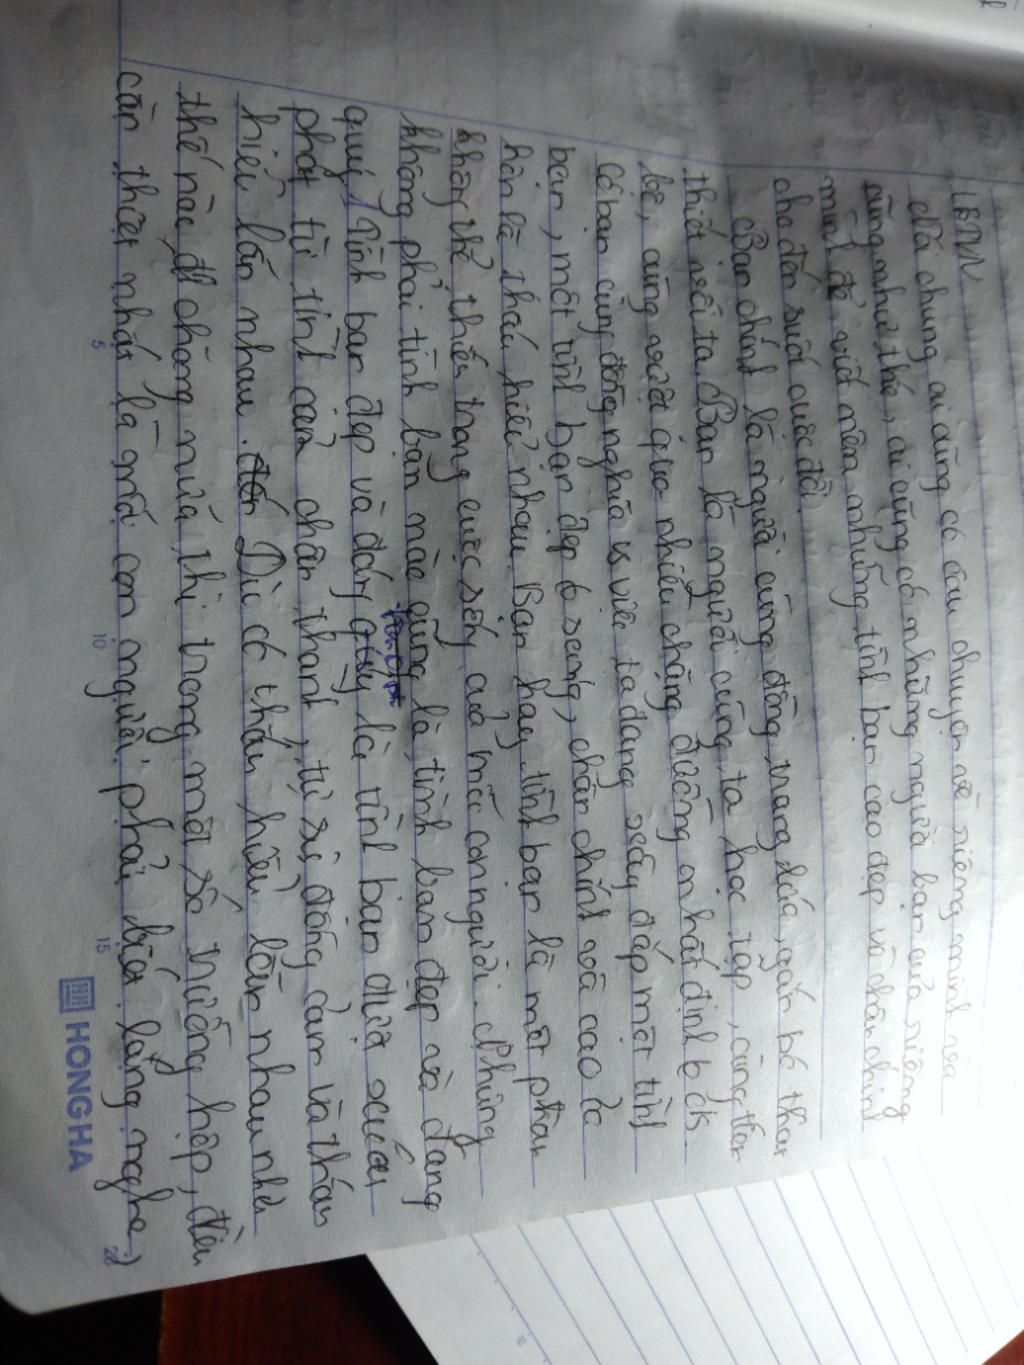 Nói chung ai cũng có câu chuyện về riêng mình và
cũng như thế, ai cũng có những người bạn của riêng
mình để viết nên những tình bạn cao đẹp và chân chính
cho đến suốt cuộc đời
Bạn chính là người cùng đồng trang lứa, gắn bó thân
thiết với ta. Bạn là người cùng ta học tập, cùng
bè, cùng vượt qua nhiều chặng đường nhất định
Có bạn cũng đồng nghĩa vs việc ta đang xây đắp một tình
bạn, một tình bạn đẹp trong sáng, chân chính và cao cả
hơn là thấu hiểu nhau. Bạn hay tình bạn là một phần
không thể thiếu trong cuộc sống của mỗi con người. Nhưng
không phải tình bạn nào cũng là tình bạn đẹp và đáng
quý. Tình bạn đẹp và đáng là tình bạn được xuất
phát từ tình cảm chân thành, từ sự đồng cảm và thấu
hiểu lẫn nhau. Dù có thấu hiểu lẫn nhau như
thế nào đi chăng nữa thì trong một số trường hợp, điều
cần thiết nhất là mỗi con người phải biết lắng nghe,
5
10
15
20
HONG HA